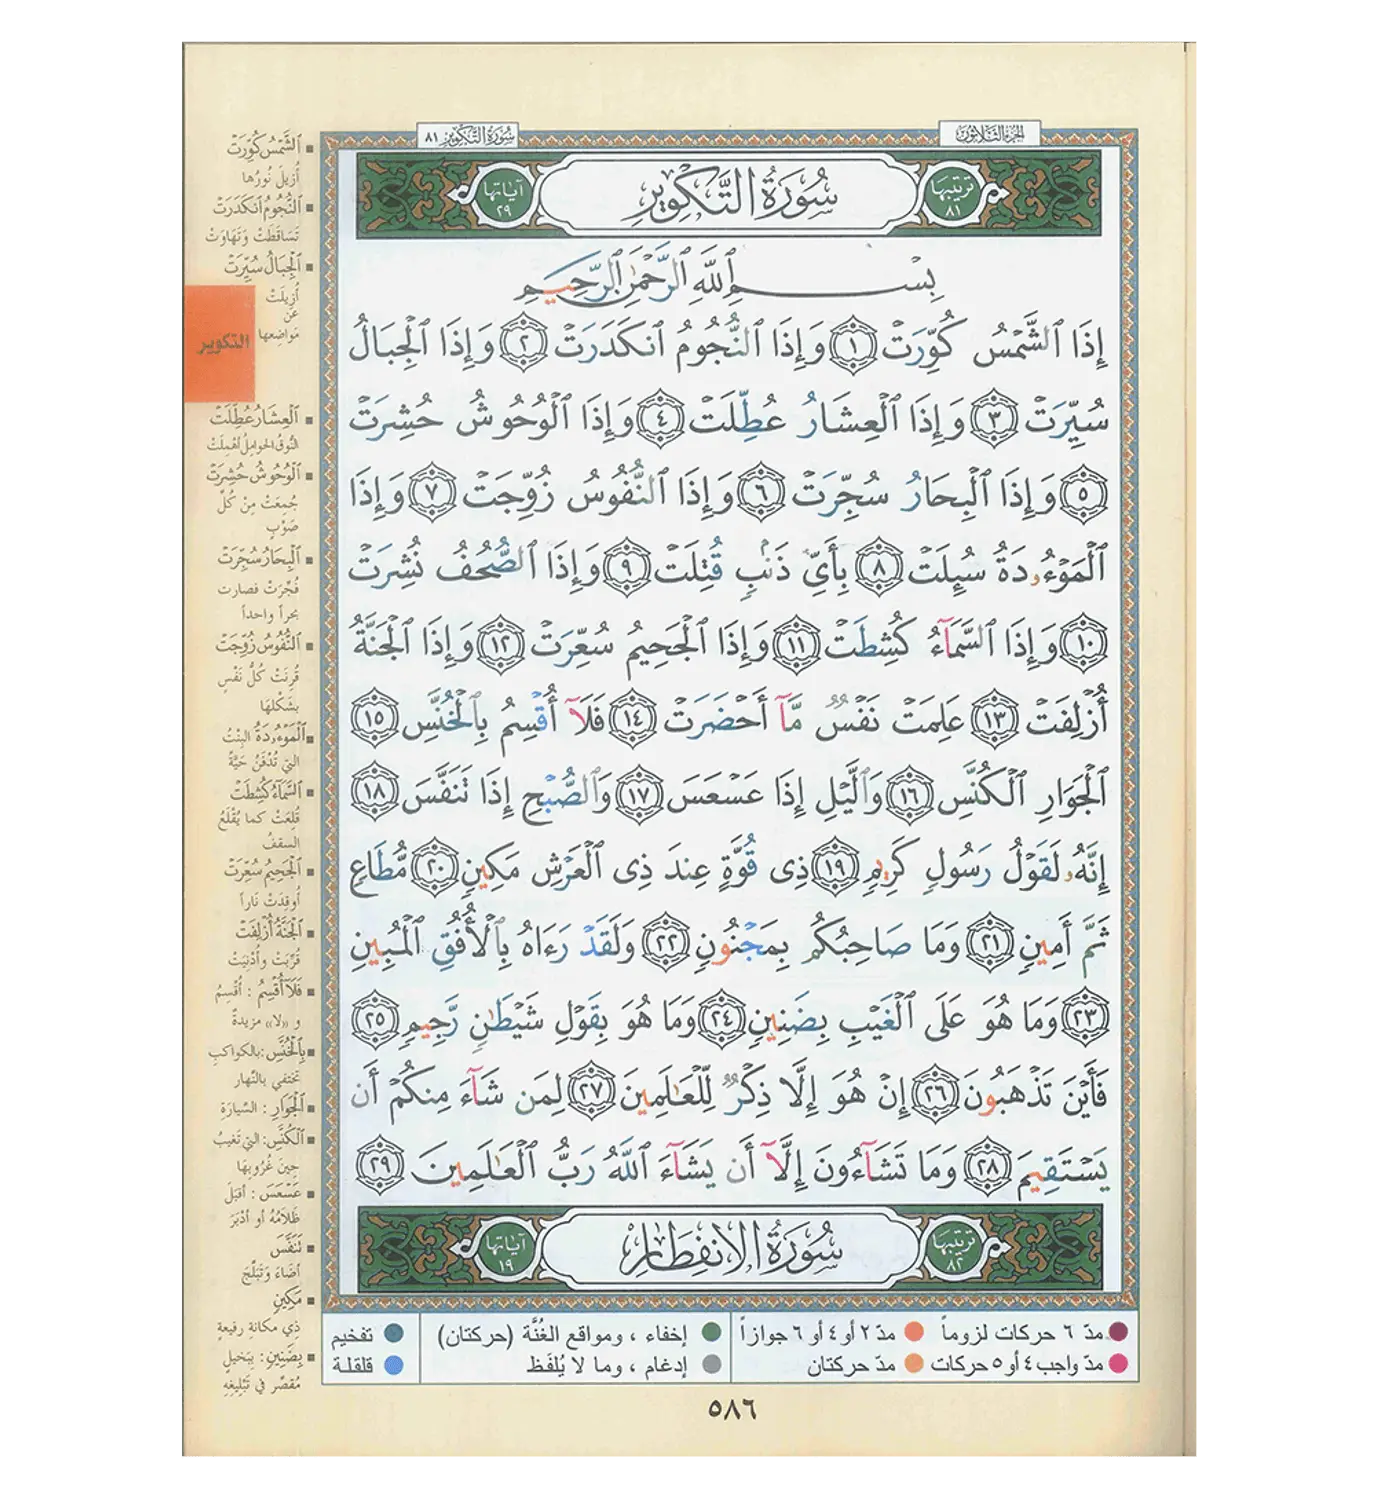 الجزء الثلاثون
سورة التكوير ٨١
ترتيبها ٨١
سُورَةُ التَّكْوِيرِ
آياتها ٢٩
بِسْمِ ٱللَّهِ ٱلرَّحْمَٰنِ ٱلرَّحِيمِ
إِذَا ٱلشَّمْسُ كُوِّرَتْ ١ وَإِذَا ٱلنُّجُومُ ٱنكَدَرَتْ ٢ وَإِذَا ٱلْجِبَالُ
سُيِّرَتْ ٣ وَإِذَا ٱلْعِشَارُ عُطِّلَتْ ٤ وَإِذَا ٱلْوُحُوشُ حُشِرَتْ
٥ وَإِذَا ٱلْبِحَارُ سُجِّرَتْ ٦ وَإِذَا ٱلنُّفُوسُ زُوِّجَتْ ٧ وَإِذَا
ٱلْمَوْءُۥدَةُ سُئِلَتْ ٨ بِأَيِّ ذَنۢبٍ قُتِلَتْ ٩ وَإِذَا ٱلصُّحُفُ نُشِرَتْ
١٠ وَإِذَا ٱلسَّمَآءُ كُشِطَتْ ١١ وَإِذَا ٱلْجَحِيمُ سُعِّرَتْ ١٢ وَإِذَا ٱلْجَنَّةُ
أُزْلِفَتْ ١٣ عَلِمَتْ نَفْسٌ مَّآ أَحْضَرَتْ ١٤ فَلَآ أُقْسِمُ بِٱلْخُنَّسِ ١٥
ٱلْجَوَارِ ٱلْكُنَّسِ ١٦ وَٱلَّيْلِ إِذَا عَسْعَسَ ١٧ وَٱلصُّبْحِ إِذَا تَنَفَّسَ ١٨
إِنَّهُۥ لَقَوْلُ رَسُولٍ كَرِيمٍ ١٩ ذِى قُوَّةٍ عِندَ ذِى ٱلْعَرْشِ مَكِينٍ ٢٠ مُّطَاعٍ
ثَمَّ أَمِينٍ ٢١ وَمَا صَاحِبُكُم بِمَجْنُونٍ ٢٢ وَلَقَدْ رَءَاهُ بِٱلْأُفُقِ ٱلْمُبِينِ
٢٣ وَمَا هُوَ عَلَى ٱلْغَيْبِ بِضَنِينٍ ٢٤ وَمَا هُوَ بِقَوْلِ شَيْطَٰنٍ رَّجِيمٍ ٢٥
فَأَيْنَ تَذْهَبُونَ ٢٦ إِنْ هُوَ إِلَّا ذِكْرٌ لِّلْعَٰلَمِينَ ٢٧ لِمَن شَآءَ مِنكُمْ أَن
يَسْتَقِيمَ ٢٨ وَمَا تَشَآءُونَ إِلَّآ أَن يَشَآءَ ٱللَّهُ رَبُّ ٱلْعَٰلَمِينَ ٢٩
ترتيبها ٨٢
سُورَةُ الانفِطَارِ
آياتها ١٩
ٱلشَّمْسُ كُوِّرَتْ
أُزيلَ نُورُها
ٱلنُّجُومُ ٱنكَدَرَتْ
تَسَاقَطَتْ وَتَهَاوَتْ
ٱلْجِبَالُ سُيِّرَتْ
أُزِيلَتْ
عَن
مَواضِعها
التكوير
ٱلْعِشَارُ عُطِّلَتْ
النُّوقُ الحَوامِلُ أُهْمِلَتْ
ٱلْوُحُوشُ حُشِرَتْ
جُمِعَتْ مِنْ كُلِّ
صَوْبٍ
ٱلْبِحَارُ سُجِّرَتْ
فُجِّرَتْ فصارت
بحراً واحداً
ٱلنُّفُوسُ زُوِّجَتْ
قُرِنَتْ كُلُّ نَفْسٍ
بشَكْلِهَا
ٱلْمَوْءُۥدَةُ البِنْتُ
التي تُدْفَنُ حَيَّةً
ٱلسَّمَآءُ كُشِطَتْ
قُلِعَتْ كما يُقْلَعُ
السقفُ
ٱلْجَحِيمُ سُعِّرَتْ
أُوقِدَتْ نَاراً
ٱلْجَنَّةُ أُزْلِفَتْ
قُرِّبَتْ وأُدْنِيَتْ
فَلَآ أُقْسِمُ : أُقْسِمُ
و «لا» مزيدةٌ
بِٱلْخُنَّسِ: بالكواكبِ
تختفي بالنَّهار
ٱلْجَوَارِ : السَّيارَةِ
ٱلْكُنَّسِ: التي تَغيبُ
حِينَ غُرُوبِهَا
عَسْعَسَ : أقبَلَ
ظَلامُهُ أو أدْبَرَ
تَنَفَّسَ
أضَاءَ وَتَبَلَّجَ
مَكِينٍ
ذِي مكانة رفيعةٍ
بِضَنِينٍ: ببَخيلٍ
مُقصِّرٍ في تَبْلِيغِهِ
مدّ ٦ حركات لزوماً
مدّ ٢ أو ٤ أو ٦ جوازاً
إخفاء ، ومواقع الغُنَّة (حركتان)
تفخيم
مدّ واجب ٤ أو ٥ حركات
مدّ حركتان
إدغام ، وما لا يُلفَظ
قلقلة
٥٨٦